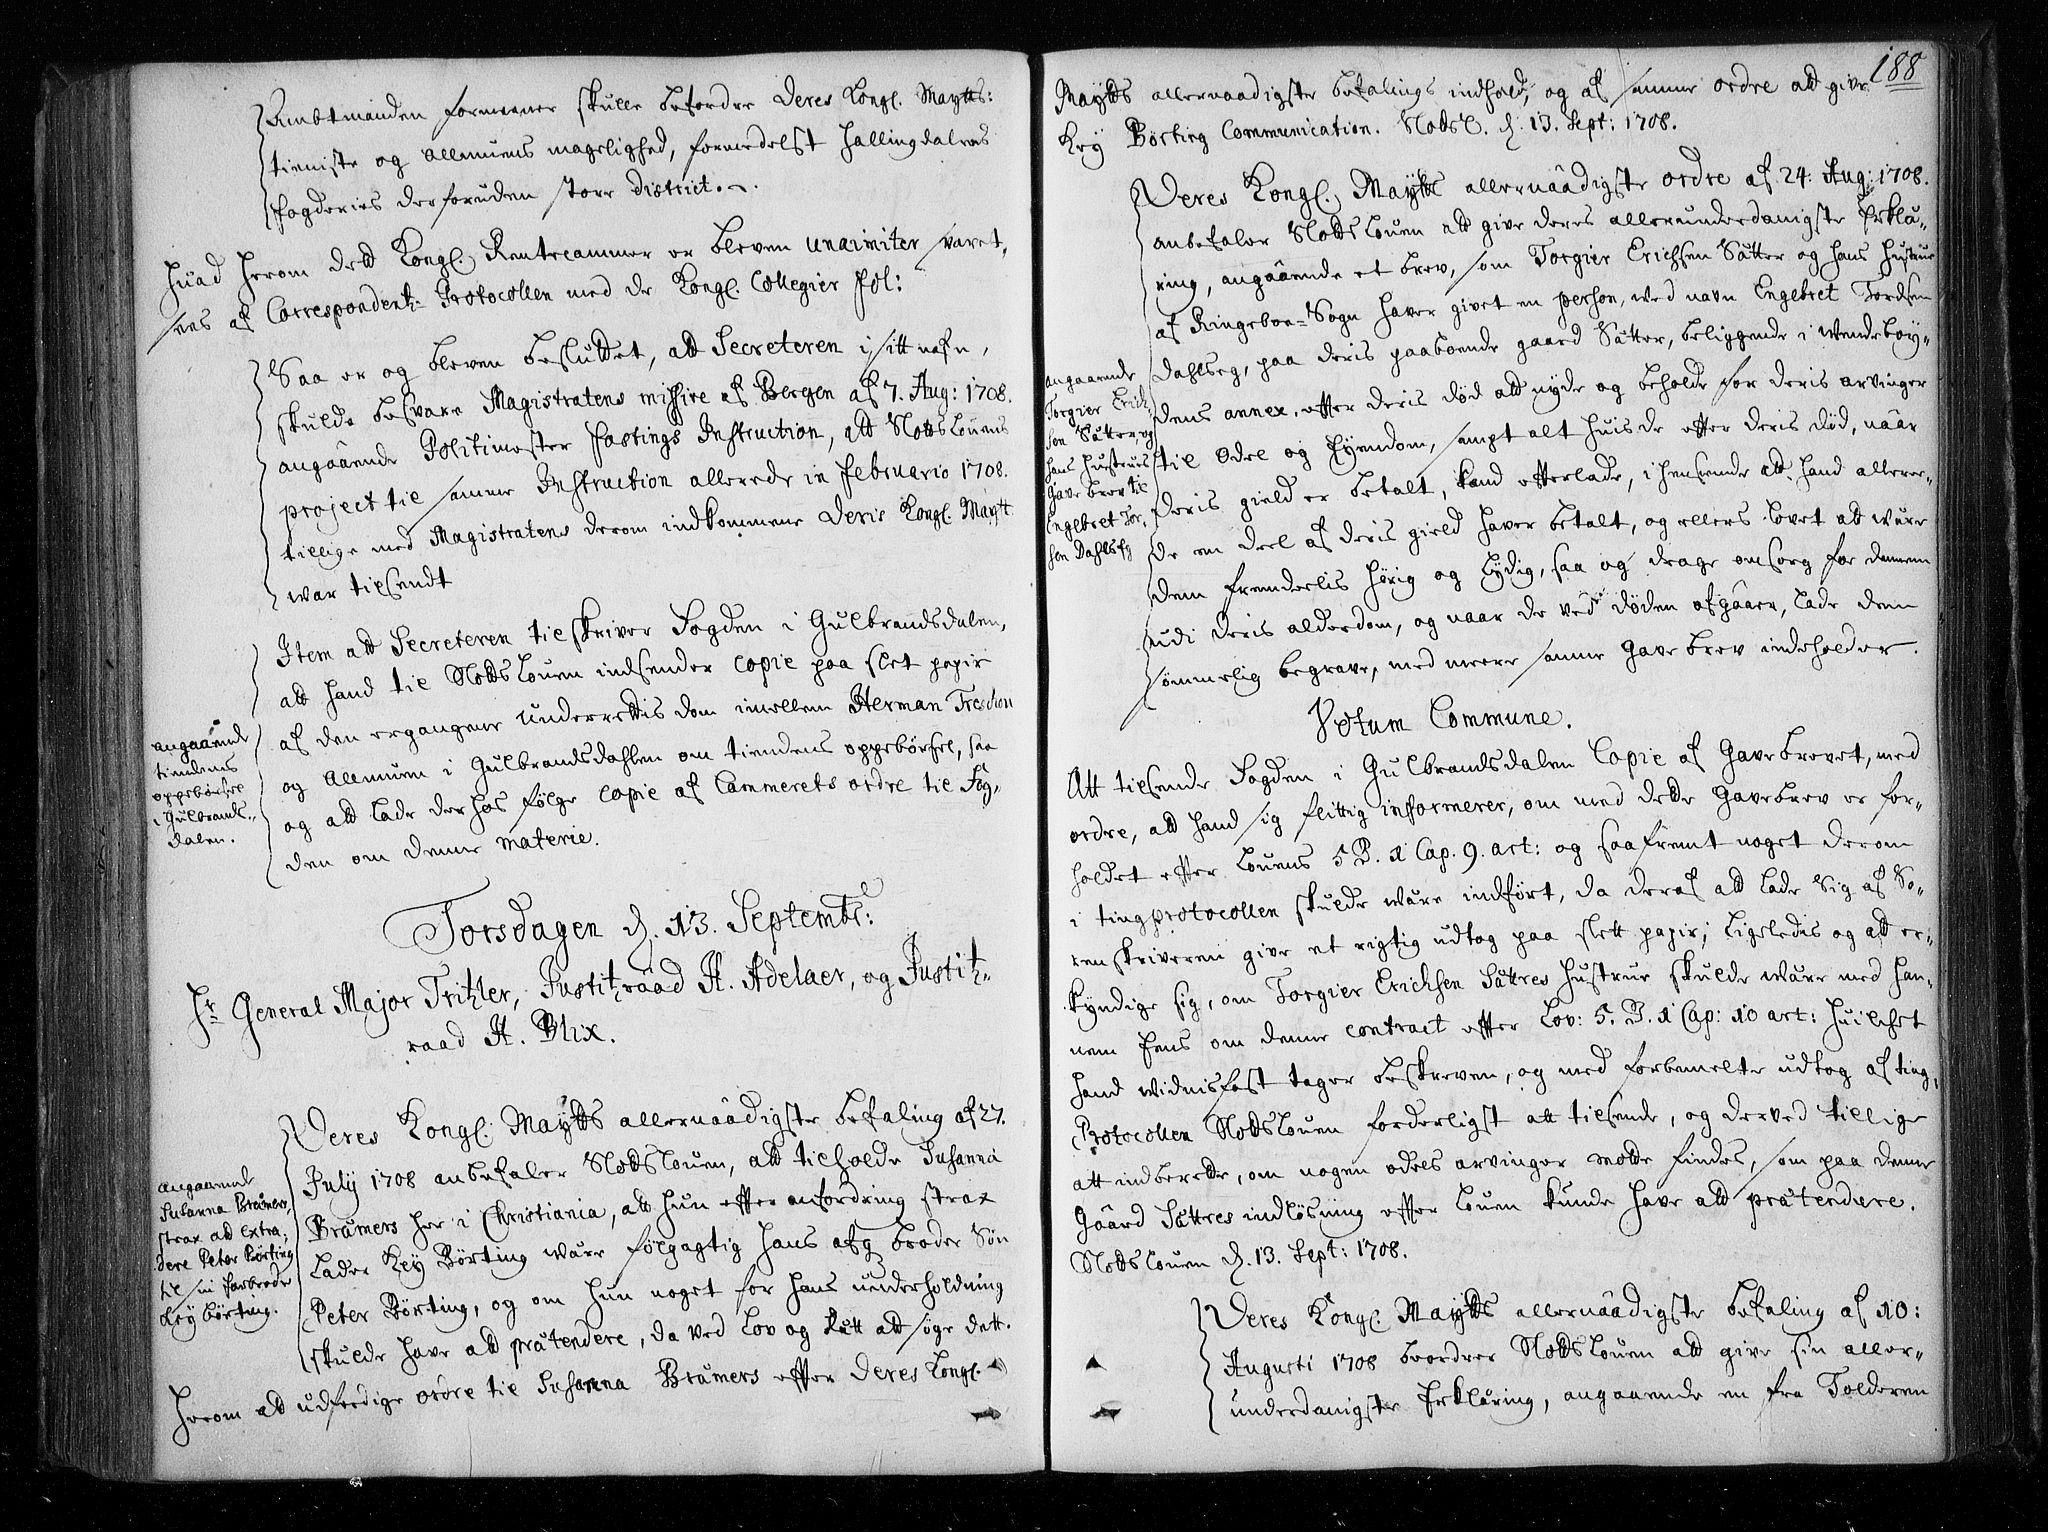 Ambtmanden formeener skulle befordre Deres Kongl. Maytts:
tieniste og Allmuens magelighed, formedelst Hallingdalens
fogderies derforuden store District.
Huad herom dett Kongl. Rentecammer er bleven unanimiter svaret,
sees af Correspondentz-Protocollen med de Kongl. Collegier fol:
Saa er og bleven besluttet, att Secreteren i sitt nafn,
skulde besvare Magistratens missive af Bergen af 7. Aug: 1708.
angaaende Politimester Fastings Instruction, att Slotts Louens
project til samme Instruction allerede in Februario 1708.
tillige med Magistratens derom indkomne Deris Kongl. Maytt
war tilsendt
Item att Secreteren tilskriver Fogden i Gulbrandsdalen,
att hand til Slotts Louen indsender copie paa slet papir
af den ergangene Underrettis dom imellem Herman Treschou
og Allmuen i Gulbrandsdahlen om tiendens oppebørsel, saa
og att lade derhos følge copie af Cammerets ordre til Fog,
den om denne materie.
angaaende
tiendens
oppebørsel
i Gulbrands,,
dalen.
Torsdagen d. 13. Septembr:
Hr General Major Tritzler, Justitzraad H. Adelaer, og Justitz-
raad H. Blix.
Deres Kongl. Maytts allernaadigste befaling af 27.
July 1708 anbefaler Slotts Louen, att tilholde Susanna
Bræmers her i Christiania, att hun effter anfordring strax
lader Key Børting være følgagtig hans afg broder Søn
Peter Børting, og om hun noget for hans underholdning
skulde have att prætendere, da ved Lov og Rett att søge dett.
angaaende
Susanna Bræmers,
strax att extra,
dere Peter Børting
til sin farbrode
Key Børting.
Herom att udferdige ordre til Susanna Bræmers effter Deres Kongl.
188
Maytts allernaadigste befalings indhold, og af samme ordre att give
Key Børting Communication. SlottsL. d. 13. Sept: 1708.
Deres Kongl. Maytts allernaadigste ordre af 24. Aug: 1708.
anbefaler Slotts Louen att give deres allerunderdanigste Erklæ-
ring, angaaende et brev, som Torgier Erichsen Sætter og hans hustrue
af Ringeboe-Sogn haver givet en person, ved navn Engebret Tordsen
Dahlseg, paa deris paaboende gaard Sætter, beliggende i Wendebøy-
dens annex, effter deris død att nyde og beholde for deris arvinger
til Odel og Eyendom, sampt alt huis de effter deris død, naar
deris gield er betalt, kand effterlade, i henseende att hand allere-
de en deel af deris gield haver betalt, og ellers lovet att være
dem fremdelis hørig og lydig, saa og drage omsorg for dennem
udi deris alderdom, og naar de ved døden afgaaer, lade dem
sømmelig begrave, med meere samme Gavebrev indeholder.
angaaende
Torgier Erich-
sen Sætter, og
hans hustrues
Gave brev til
Engebret Tor,
sen Dahlseg
Votum Commune.
Att tilsende Fogden i Gulbrandsdalen Copie af Gavebrevet, med
ordre, att hand sig flittig informerer, om med dette Gavebrev er for-
holdet effter Louens 5 B. 1 Cap. 9. art: og saafremt noget derom
i tingprotocollen skulde være indført, da deraf att lade Sig af So-
renskriveren give et rigtig udtog paa slett papir; Ligeledis og att er-
kyndige sig, om Torgier Erichsen Sættres Hustrue skulde være med han-
nem Eens om denne contract effter Lov: 5. B. 1 Cap: 10 art: huilchet
hand widnisfast tager beskreven, og med forbemelte udtog af ting,
Protocollen Slotts Louen forderligst att tilsende, og derved tillige
att indberette, om nogen odels arvinger motte findes, som paa denne
Gaard Sættres indløsning effter Louen kunde have att prætendere.
Slotts Louen d. 13. Sept: 1708.
Deres Kongl. Maytts allernaadigste befaling af 10:
Augusti 1708 beordrer Slotts Louen att give sin aller-
underdanigste Erklæring, angaaende en fra Tolderen